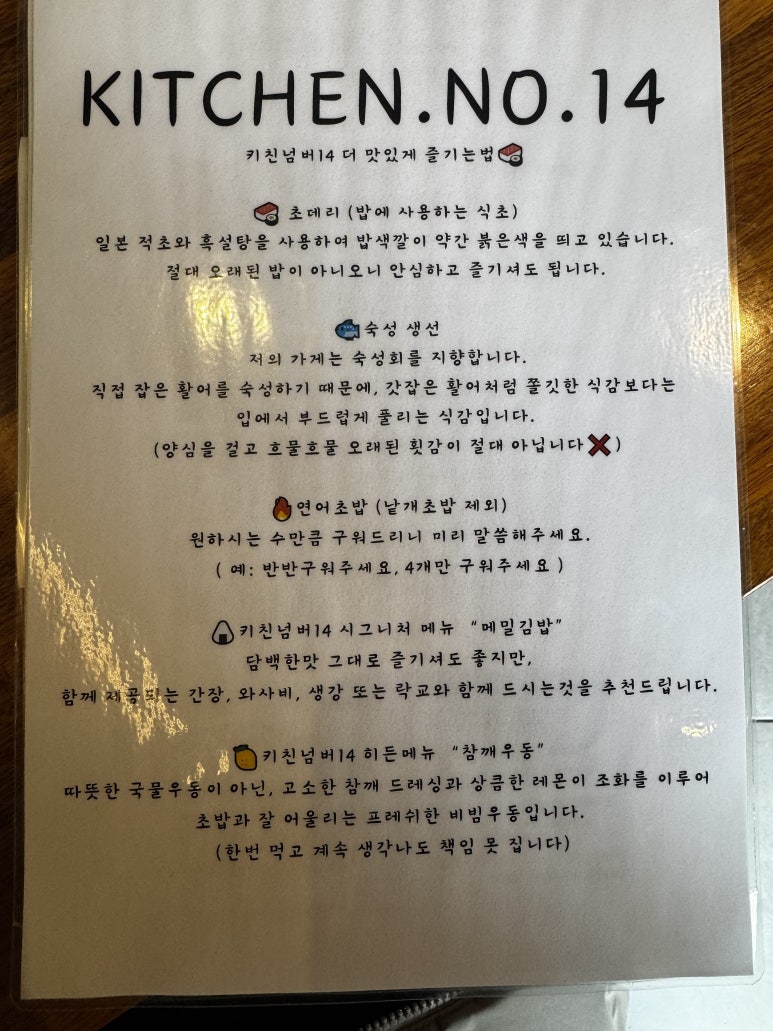 KITCHEN.NO.14
키친넘버14 더 맛있게 즐기는법
초데리 (밥에 사용하는 식초)
일본 적초와 흑설탕을 사용하여 밥색깔이 약간 붉은색을 띄고 있습니다.
절대 오래된 밥이 아니오니 안심하고 즐기셔도 됩니다.
숙성 생선
저의 가게는 숙성회를 지향합니다.
직접 잡은 활어를 숙성하기 때문에, 갓잡은 활어처럼 쫄깃한 식감보다는
입에서 부드럽게 풀리는 식감입니다.
(양심을 걸고 흐물흐물 오래된 횟감이 절대 아닙니다❌)
연어초밥 (낱개초밥 제외)
원하시는 수만큼 구워드리니 미리 말씀해주세요.
( 예: 반반구워주세요, 4개만 구워주세요 )
키친넘버14 시그니처 메뉴 “메밀김밥”
담백한맛 그대로 즐기셔도 좋지만,
함께 제공되는 간장, 와사비, 생강 또는 락교와 함께 드시는것을 추천드립니다.
키친넘버14 히든메뉴 “참깨우동”
따뜻한 국물우동이 아닌, 고소한 참깨 드레싱과 상큼한 레몬이 조화를 이루어
초밥과 잘 어울리는 프레쉬한 비빔우동입니다.
(한번 먹고 계속 생각나도 책임 못 집니다)